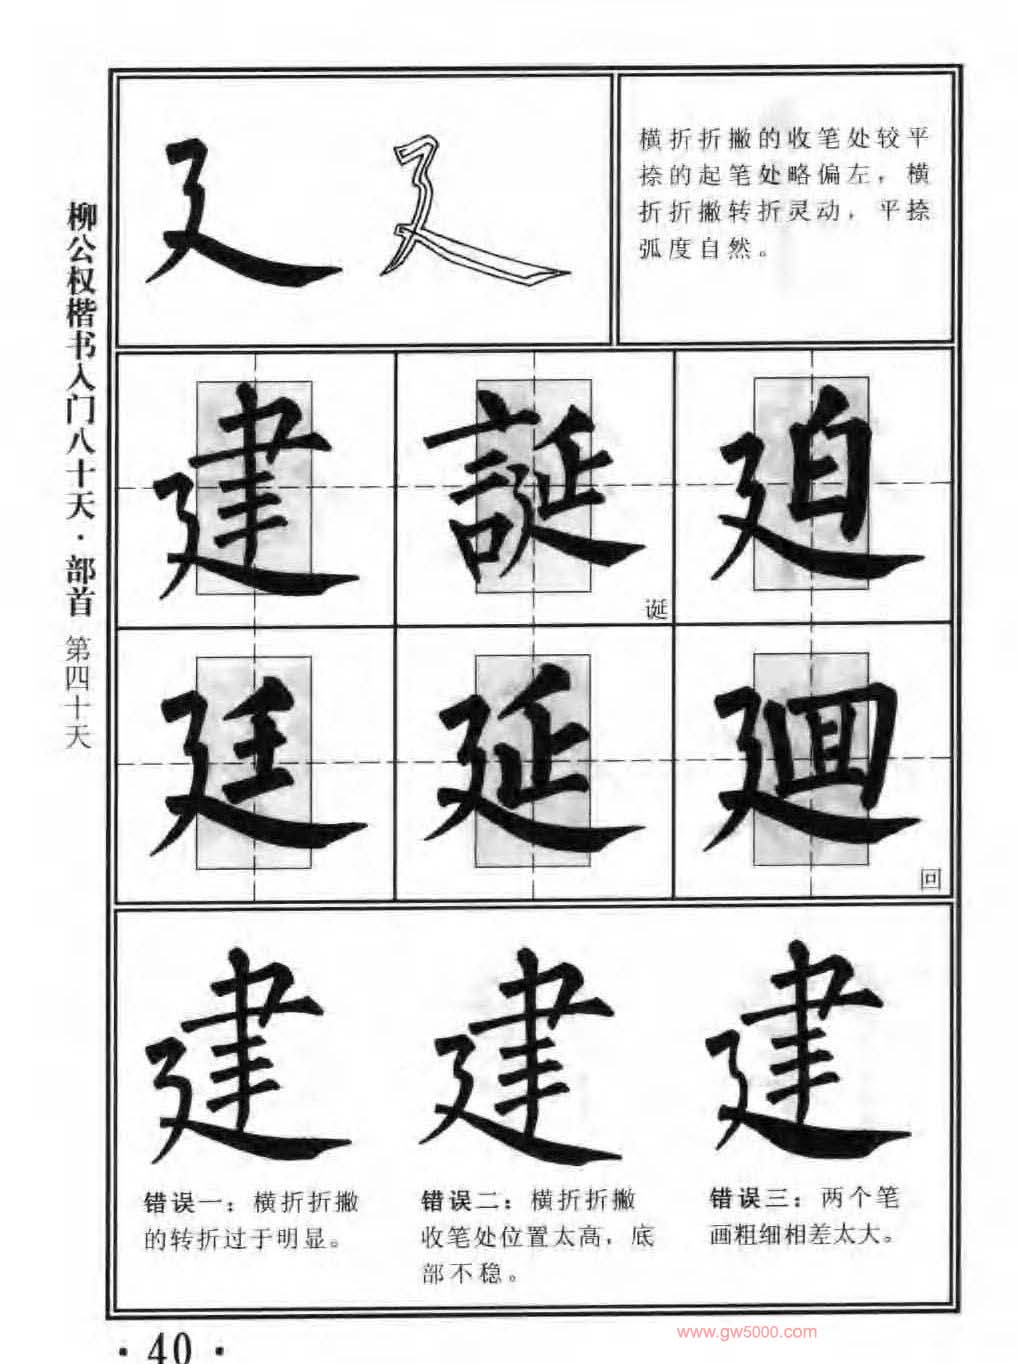 柳公权楷书入门八十天·部首 第四十天
廴 廴
横折折撇的收笔处较平
捺的起笔处略偏左，横
折折撇转折灵动，平捺
弧度自然。
建 誕 廹
诞
廷 延 廻
回
建 建 建
错误一：横折折撇
的转折过于明显。
错误二：横折折撇
收笔处位置太高，底
部不稳。
错误三：两个笔
画粗细相差太大。
www.gw5000.com
·40·